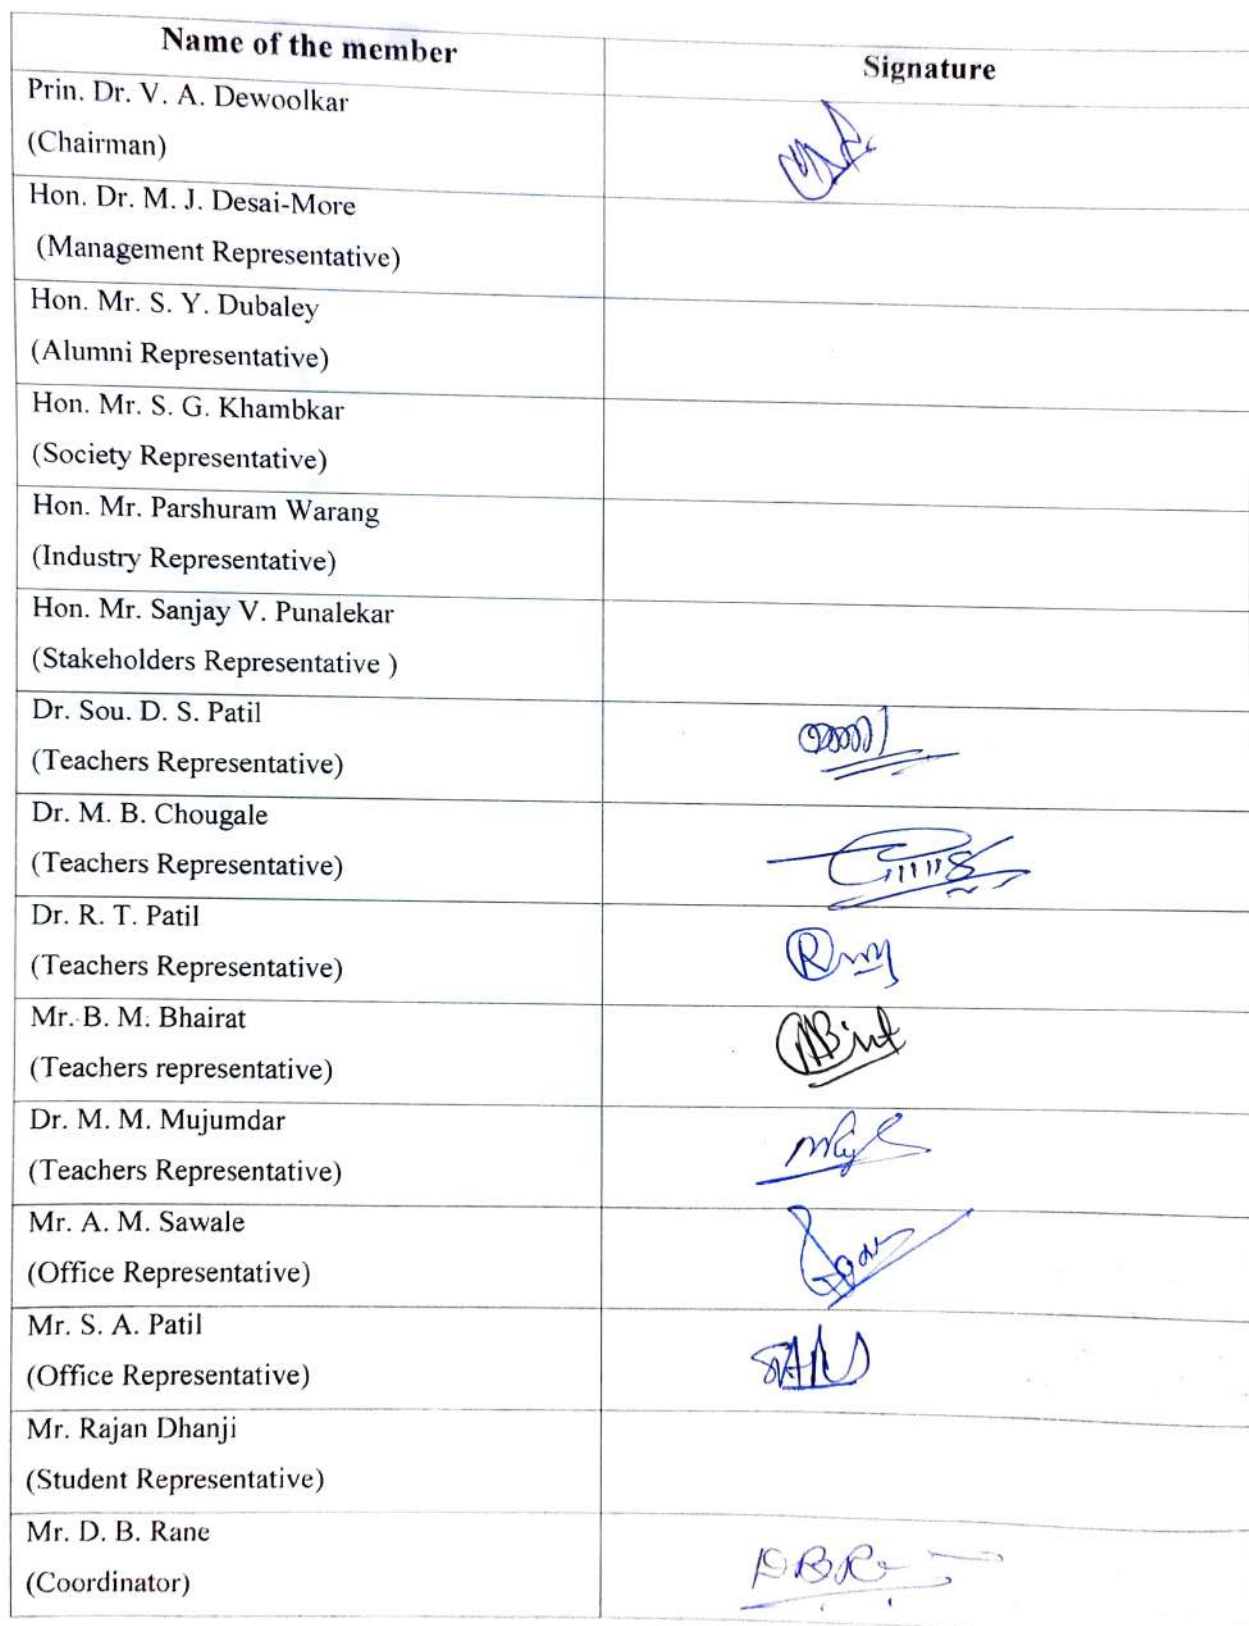 Name of the member
Signature
Prin. Dr. V. A. Dewoolkar
(Chairman)
Hon. Dr. M. J. Desai-More
(Management Representative)
Hon. Mr. S. Y. Dubaley
(Alumni Representative)
Hon. Mr. S. G. Khambkar
(Society Representative)
Hon. Mr. Parshuram Warang
(Industry Representative)
Hon. Mr. Sanjay V. Punalekar
(Stakeholders Representative )
Dr. Sou. D. S. Patil
(Teachers Representative)
Dr. M. B. Chougale
(Teachers Representative)
Dr. R. T. Patil
(Teachers Representative)
Mr. B. M. Bhairat
(Teachers representative)
Dr. M. M. Mujumdar
(Teachers Representative)
Mr. A. M. Sawale
(Office Representative)
Mr. S. A. Patil
(Office Representative)
Mr. Rajan Dhanji
(Student Representative)
Mr. D. B. Rane
(Coordinator)